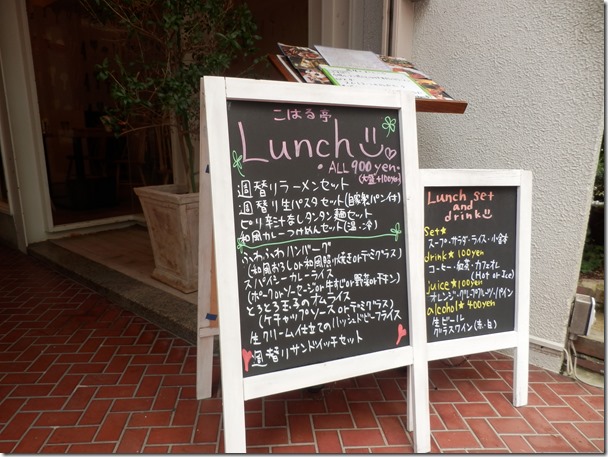 こはる亭
Lunch
・ALL 900yen・
(大盛+100yen)
週替りラーメンセット
週替り生パスタセット(自家製パン付)
ピリ辛汁なしタンタン麺セット
和風カレーつけめんセット(温・冷)
ふわふわハンバーグ
(和風おろしor和風照り焼きorデミグラス)
スパイシーカレーライス
(ポークorソーセージor生すじor野菜orチキン)
とろとろたまごのオムライス
(ケチャップソースorデミグラス)
生クリーム仕立てのハッシュドビーフライス
週替りサンドイッチセット
Lunch set
and
drink
Set★
スープ・サラダ・ライス・小鉢
drink★100yen
コーヒー・紅茶・カフェオレ
(Hot or Ice)
juice★100yen
オレンジ・グレープフルーツ・パイン
alcohol★400yen
生ビール
グラスワイン(赤・白)